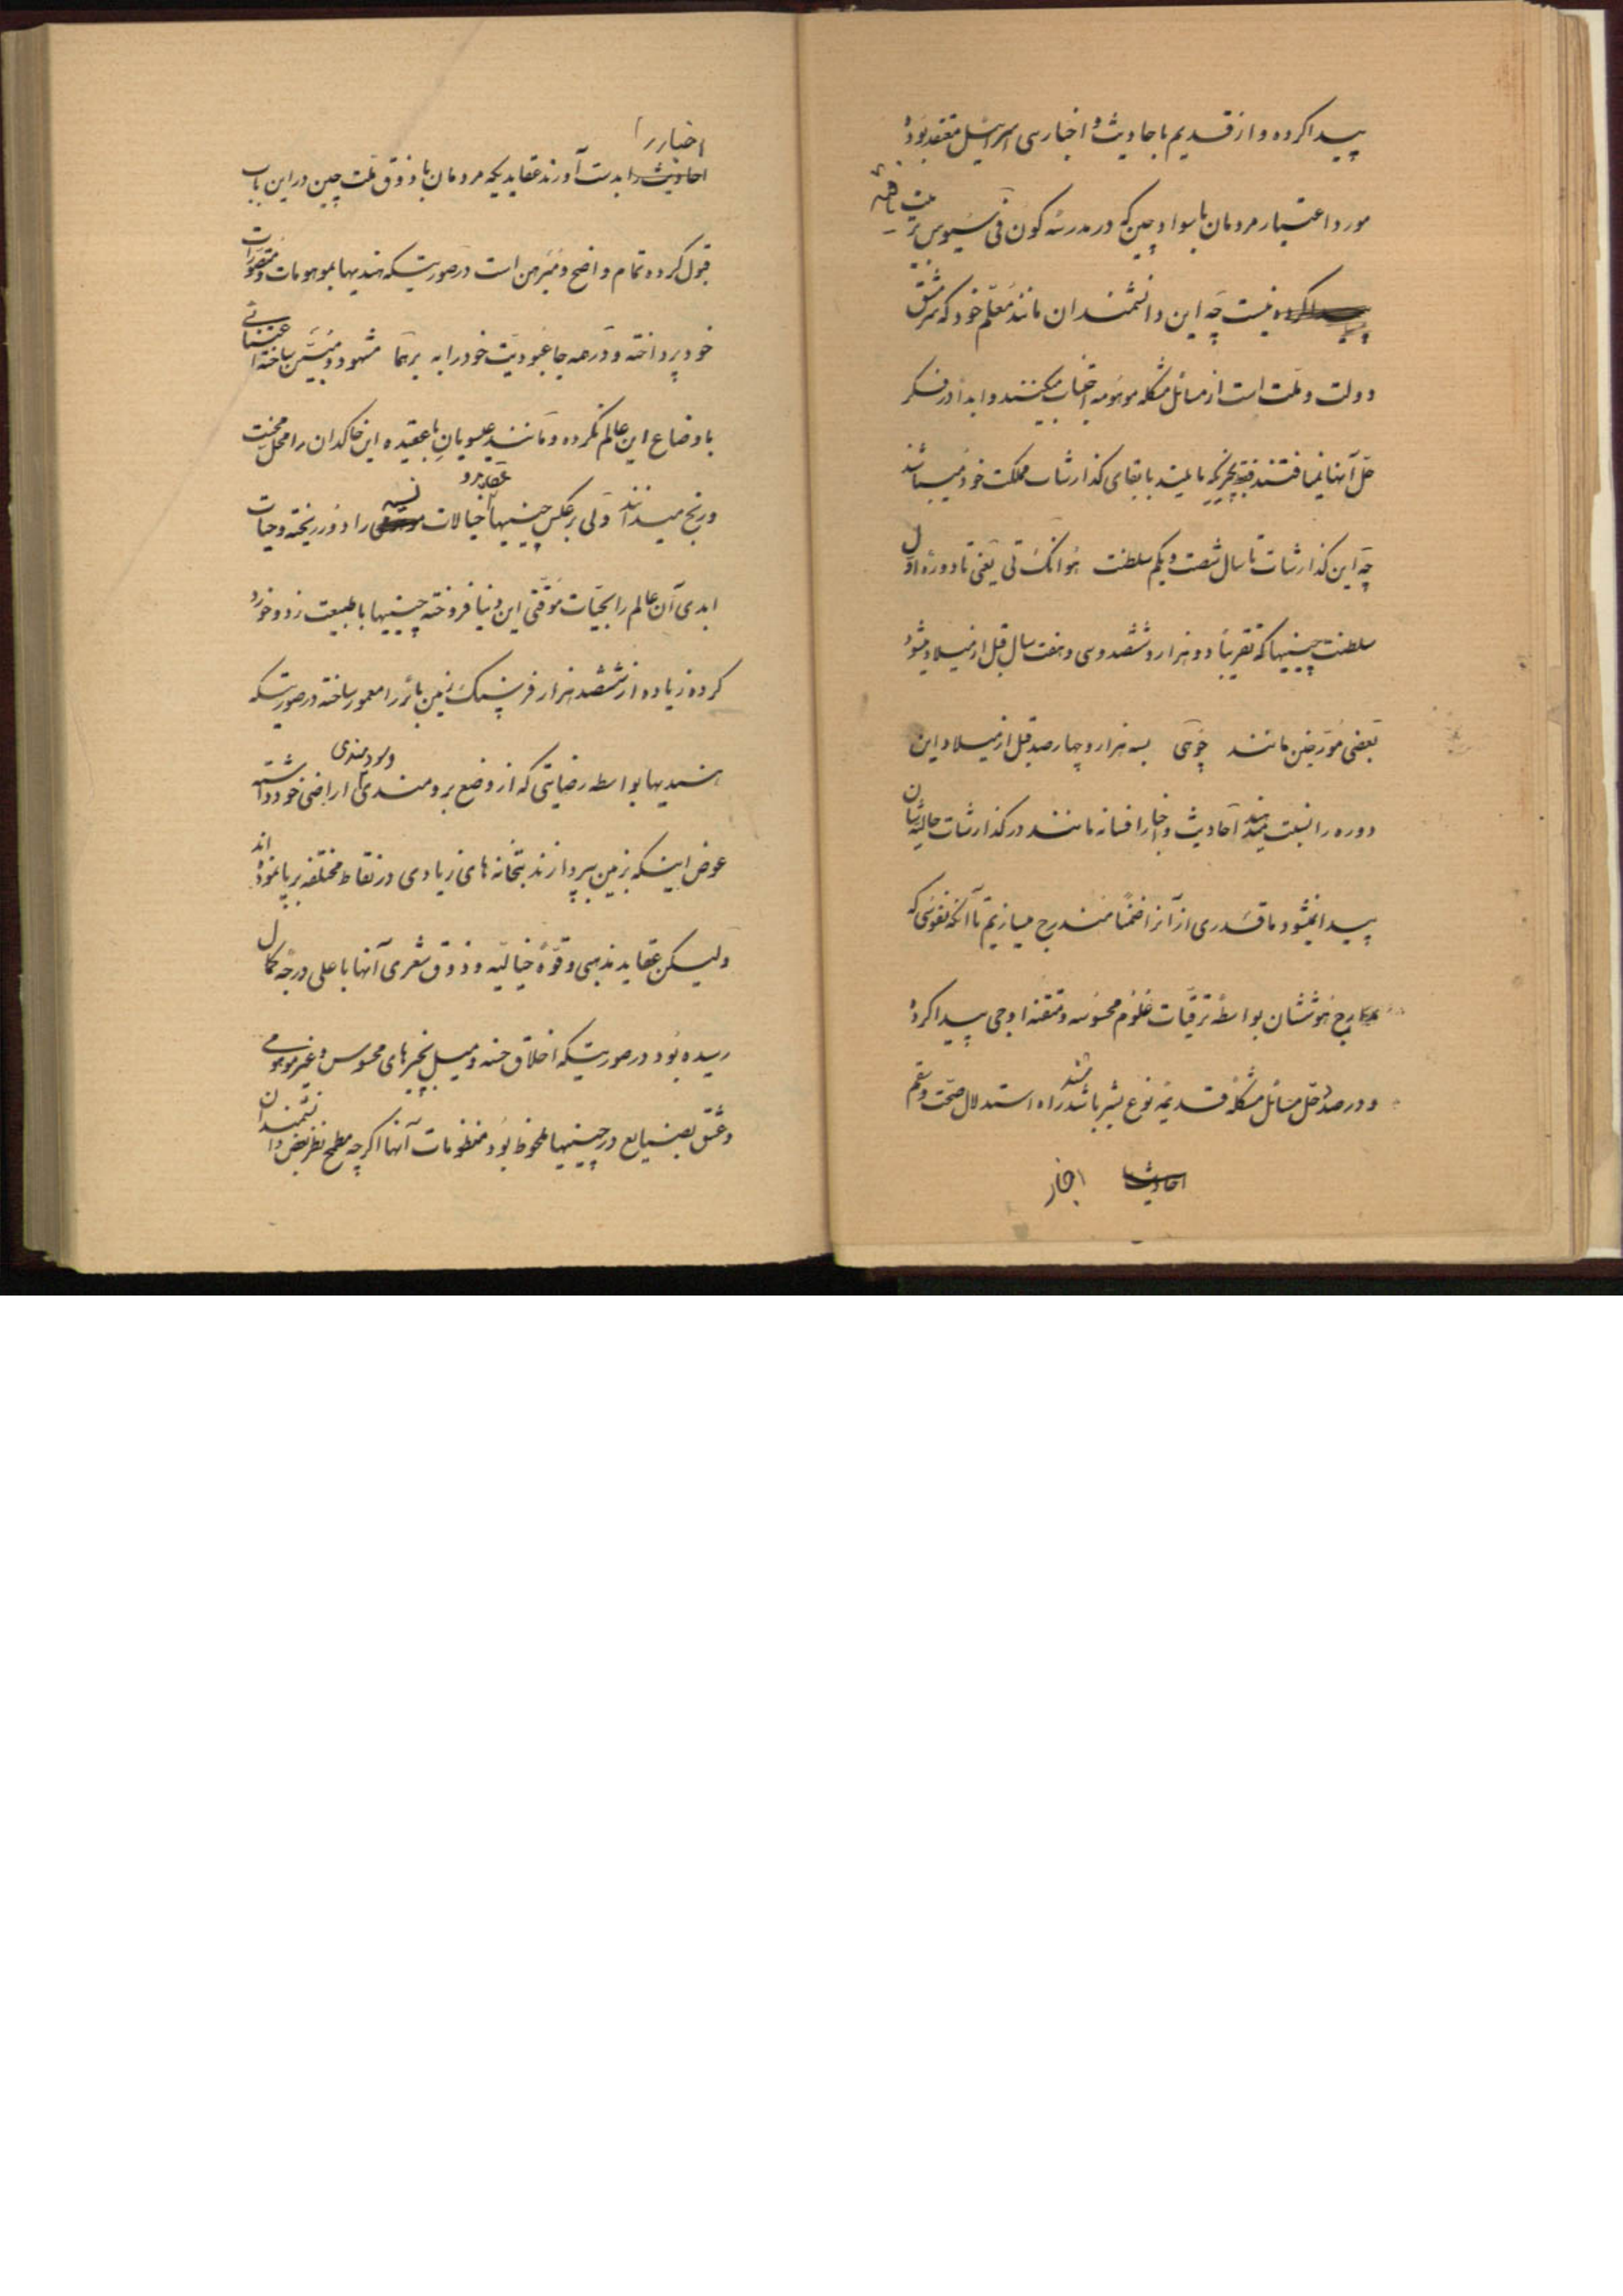 پیدا کرده و از قدیم باحادیث و اخبار سی اسرائیل معتقد بوده
مورد اعتبار مردمان با سواد چین که در مدرسهٔ کون فی سیوس تربیت یافته
نیست چه این دانشمندان مانند معلم خود که سرمشق
دولت و ملت است از مسائل مشکله موهومه اجتناب میکنند و ابداً در فکر
حل آنها نمیافتند فقط بچیزیکه مایلند بابقای گذارشات مملکت خود میباشند
چه این گذارشات تا سال شصت و یکم سلطنت هوانگ تی یعنی تا دورهٔ اول
سلطنت چینیها که تقریباً دو هزار و ششصد و سی و هفت سال قبل از میلاد میشود
بعضی مورخین مانند چوهی بسه هزار و چهارصد قبل از میلاد این
دوره را نسبت میدهند احادیث و اخبار افسانه مانند در گذارشات حالیه‌شان
پیدا نمیشود ما قدری از آنرا ضمناً مندرج میسازیم تا آنکه نفوسی که
مدارج هوششان بواسطهٔ ترقیات علوم محسوسه و متقنه اوجی پیدا کرده
و در صدد حل مسائل مشکلهٔ قدیمه نوع بشر باشند راه استدلال صحت و سقم
احادیث اخبار
اخبار را
احادیث را بدست آورند عقایدیکه مردمان با ذوق ملت چین در این باب
قبول کرده تمام واضح و مبرهن است درصورتیکه هندیها بموهومات و تصورات
خود پرداخته و در همه جا عبودیت خود را به برهما مشهود و مبین ساخته اعتنائی
باوضاع این عالم نکرده و مانند عیسویان با عقیده این خاکدان را محل محنت
و رنج میدانند ولی برعکس چینیها خیالات نسیه را دور ریخته و حیات
ابدی آن عالم را بحیات موقتی این دنیا فروخته چینیها با طبیعت زد و خورد
کرده زیاده از ششصد هزار فرسنگ زمین بائر را معمور ساخته درصورتیکه
و سودمندی
هندیها بواسطه رضایتی که از وضع برومندی اراضی خود داشته
عوض اینکه بزمین بپردازند بتخانه های زیادی در نقاط مختلفه برپا نموده اند
ولیکن عقاید مذهبی و قوهٔ خیالیه و ذوق شعری آنها باعلی درجهٔ کمال
رسیده بود درصورتیکه اخلاق حسنه و میل بچیزهای محسوس و غیر موهومی
و عشق بصنایع در چینیها ملحوظ بود منظومات آنها اگرچه مطمح نظر بعض دانشمندان